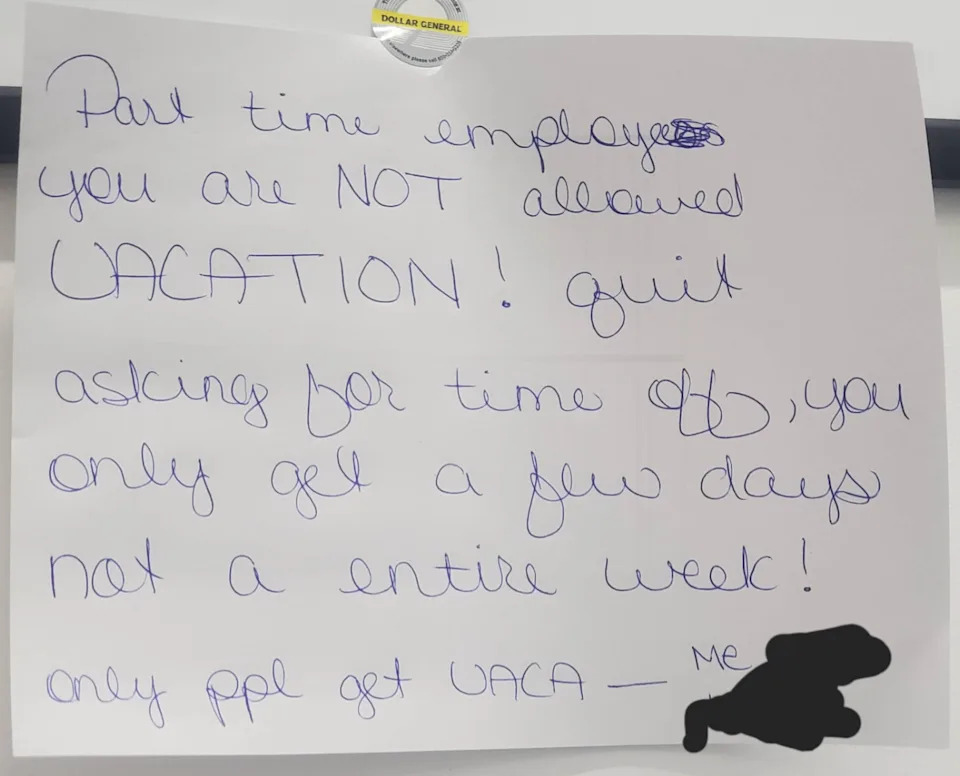 DOLLAR GENERAL
Part time employe
you are NOT allowed
VACATION! quit
asking for time off, you
only get a few days
not a entire week!
only ppl get VACA — Me